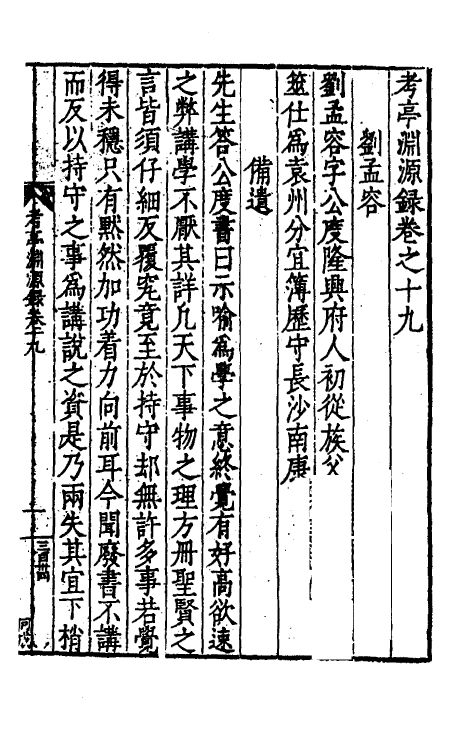 考亭淵源錄卷之十九
劉孟容
劉孟容字公度隆興府人初從族父
筮仕為袁州分宜簿歷守長沙南康
備遺
先生答公度書曰示喻為學之意終覺有好高欲速
之弊講學不厭其詳凡天下事物之理方冊聖賢之
言皆須仔細反覆究竟至於持守却無許多事若覺
得未穩只有默然加功着力向前耳今聞廢書不講
而反以持守之事為講說之資是乃兩失其宜下梢
考亭淵源錄卷十九
三百卌